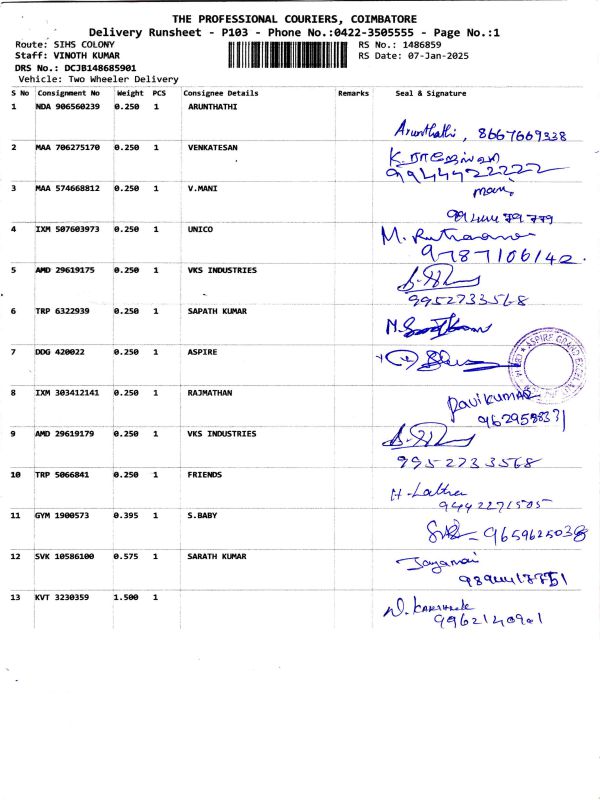 THE PROFESSIONAL COURIERS, COIMBATORE
Delivery Runsheet - P103 - Phone No.:0422-3505555 - Page No.:1
Route: SIHS COLONY RS No.: 1486859
Staff: VINOTH KUMAR RS Date: 07-Jan-2025
DRS No.: DCJB148685901
Vehicle: Two Wheeler Delivery
S No Consignment No Weight PCS Consignee Details Remarks Seal & Signature
1 NDA 906560239 0.250 1 ARUNTHATHI
Arunthathi, 8667669338
2 MAA 706275170 0.250 1 VENKATESAN
9944422222
3 MAA 574668812 0.250 1 V.MANI
mani
4 IXM 507603973 0.250 1 UNICO
M.
9787106142
5 AMD 29619175 0.250 1 VKS INDUSTRIES
9952733568
6 TRP 6322939 0.250 1 SAPATH KUMAR
7 DDG 420022 0.250 1 ASPIRE
ASPIRE GRAND
8 IXM 303412141 0.250 1 RAJMATHAN
RaviKUMAR
9 AMD 29619179 0.250 1 VKS INDUSTRIES
9952733568
10 TRP 5066841 0.250 1 FRIENDS
H. Latha
9442271505
11 GYM 1900573 0.395 1 S.BABY
9659625038
12 SVK 10586100 0.575 1 SARATH KUMAR
Jayamani
13 KVT 3230359 1.500 1
9962140901